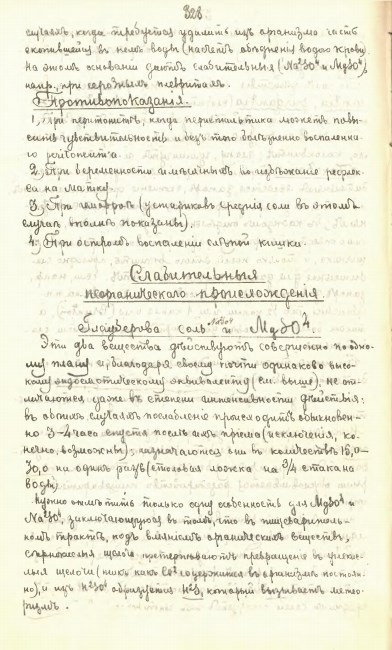 328.
случаяхъ, когда требуется удалить изъ организма часть
скопившейся въ немъ воды (насчетъ обѣднѣнія водою крови)
На этомъ основаніи даютъ слабительныя (Na²SO⁴ и MgSO⁴)
напр., при серозныхъ плевритахъ.
Противопоказанія.
1, При перитонитѣ, когда перистальтика можетъ повы-
сить чувствительность и безъ того болѣзненно воспаленна-
го
2, При беременности и мѣсячныхъ во избѣжаніе рефлек-
са на матку.
3, При геморроѣ (у истериковъ среднія соли въ этомъ
случаѣ вполнѣ показаны).
4, При остромъ воспаленіи слѣпой кишки.
Слабительныя
неорганическаго происхожденія.
Глауберова соль Na²SO⁴ и MgSO⁴.
Эти два вещества дѣйствуютъ совершенно по одно-
му типу и, благодаря своему почти одинаково высо-
кому эндосмотическому эквиваленту (см. выше), не от-
личаются даже въ степени интенсивности дѣйствія:
въ обоихъ случаяхъ послабленіе происходитъ обыкновен-
но 3-4 часа спустя послѣ ихъ пріема (исключенія, ко-
нечно, возможны); назначаются они въ количествѣ 15,0-
30,0 на одинъ разъ (столовая ложка на ¾ стакана
воды).
Нужно отмѣтить только одну особенность для MgSO⁴ и
Na²SO⁴, заключающуюся въ томъ, что въ пищеваритель-
номъ трактѣ, подъ вліяніемъ органическихъ веществъ,
сѣрнокислыя щелочи претерпѣваютъ превращеніе въ углекис-
лыя щелочи (такъ какъ CO² содержится въ организмѣ постоян-
но), и изъ образуется H²S, который вызываетъ метео-
ризмъ.